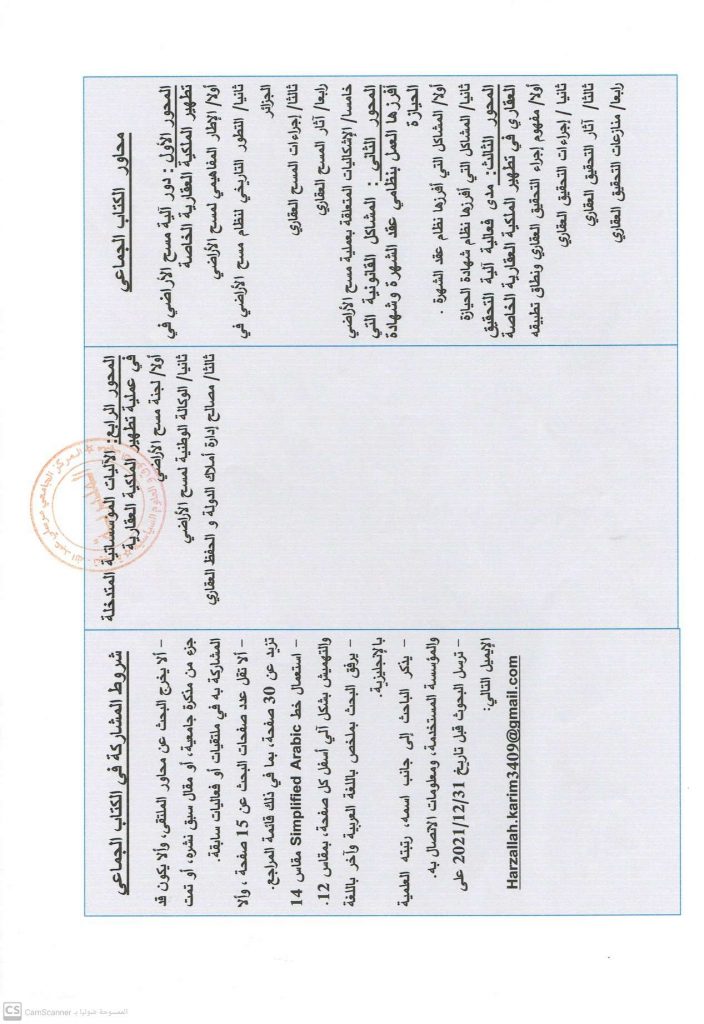 محاور الكتاب الجماعي
المحور الأول : دور آلية مسح الأراضي في
تطهير الملكية العقارية الخاصة
أولا/ الإطار المفاهيمي لمسح الأراضي
ثانيا/ التطور التاريخي لنظام مسح الأراضي في
الجزائر
ثالثا/ إجراءات المسح العقاري
رابعا/ آثار المسح العقاري
خامسا/ الإشكاليات المتعلقة بعملية مسح الأراضي
المحور الثاني : المشاكل القانونية التي
أفرزها العمل بنظامي عقد الشهرة وشهادة
الحيازة
أولا/ المشاكل التي أفرزها نظام عقد الشهرة .
ثانيا/ المشاكل التي أفرزها نظام شهادة الحيازة
المحور الثالث: مدى فعالية آلية التحقيق
العقاري في تطهير الملكية العقارية الخاصة
أولا/ مفهوم إجراء التحقيق العقاري ونطاق تطبيقه
ثانيا / إجراءات التحقيق العقاري
ثالثا/ آثار التحقيق العقاري
رابعا/ منازعات التحقيق العقاري
المحور الرابع: الآليات المؤسساتية المتدخلة
في عملية تطهير الملكية العقارية
أولا/ لجنة مسح الأراضي
ثانيا/ الوكالة الوطنية لمسح الأراضي
ثالثا/ مصالح إدارة أملاك الدولة و الحفظ العقاري
شروط المشاركة في الكتاب الجماعي
- ألا يخرج البحث عن محاور الملتقى، وألا يكون قد
جزء من مذكرة جامعية، أو مقال سبق نشره، أو تمت
المشاركة به في ملتقيات أو فعاليات سابقة.
- ألا تقل عدد صفحات البحث عن 15 صفحة ، وألا
تزيد عن 30 صفحة، بما في ذلك قائمة المراجع.
- استعمال خط Simplified Arabic مقاس 14
والتهميش بشكل آلي أسفل كل صفحة، بمقاس 12.
- يرفق البحث بملخص باللغة العربية وآخر باللغة
بالإنجليزية.
- يذكر الباحث إلى جانب اسمه، رتبته العلمية
والمؤسسة المستخدمة، ومعلومات الاتصال به.
- ترسل البحوث قبل تاريخ 2021/12/31 على
الإيميل التالي:
Harzallah.karim3409@gmail.com
CS CamScanner الممسوحة ضوئيا بـ